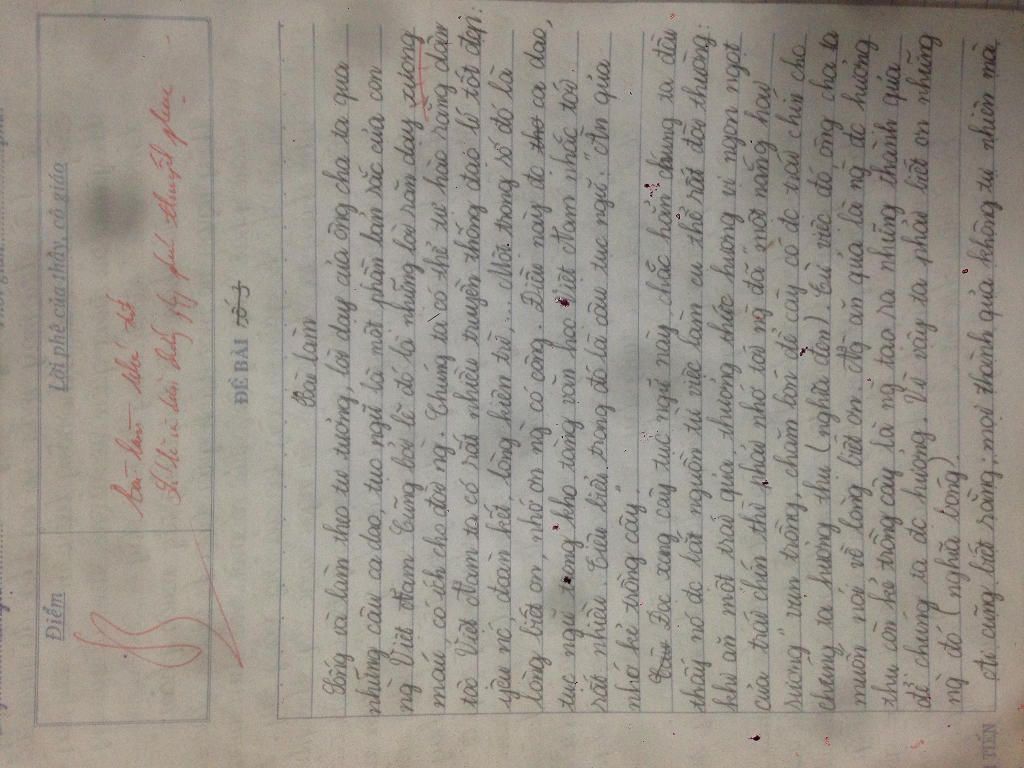 Điểm
Lời phê của thầy, cô giáo
Bài làm khá tốt
ĐỀ BÀI
Bài làm
Sống và làm theo tư tưởng, lời dạy của ông cha ta qua
những câu ca dao, tục ngữ là nét phần bản sắc của con
ng Việt Nam. Cũng bởi lẽ đó là những lời răn dạy xương
máu, có ích cho đời ng. Chúng ta có thể tự hào rằng dân
tộc Việt Nam ta có rất nhiều truyền thống đạo lí tốt đẹp:
yêu nc, đoàn kết, lòng hiếu tử,... Một trong số đó là
lòng biết ơn, nhớ ơn ng có công. Điều này đc thơ ca dao,
tục ngữ trong kho tàng văn học Việt Nam nhắc tới
rất nhiều. Tiêu biểu trong đó là câu tục ngữ: "Ăn quả
nhớ kẻ trồng cây".
Đọc xong câu tục ngữ này, chắc hẳn chúng ta đều
thấy nó đc bắt nguồn từ việc làm cụ thể rất đời thường:
khi ăn một trái quả, thưởng thức hương vị ngon ngọt
của trái chín thì phải nhớ tới ng đã "một nắng hai
sương" vun trồng, chăm bón để cây có đc trái chín cho
chúng ta hưởng thụ (nghĩa đen). Từ việc đó ông cha ta
muốn nói về lòng biết ơn. Ng ăn quả là ng đc hưởng
thụ còn kẻ trồng cây là ng tạo ra những thành quả
để chúng ta đc hưởng. Vì vậy ta phải biết ơn những
ng đó (nghĩa bóng).
Ai cũng biết rằng, mọi thành quả không tự nhiên mà
TIẾN